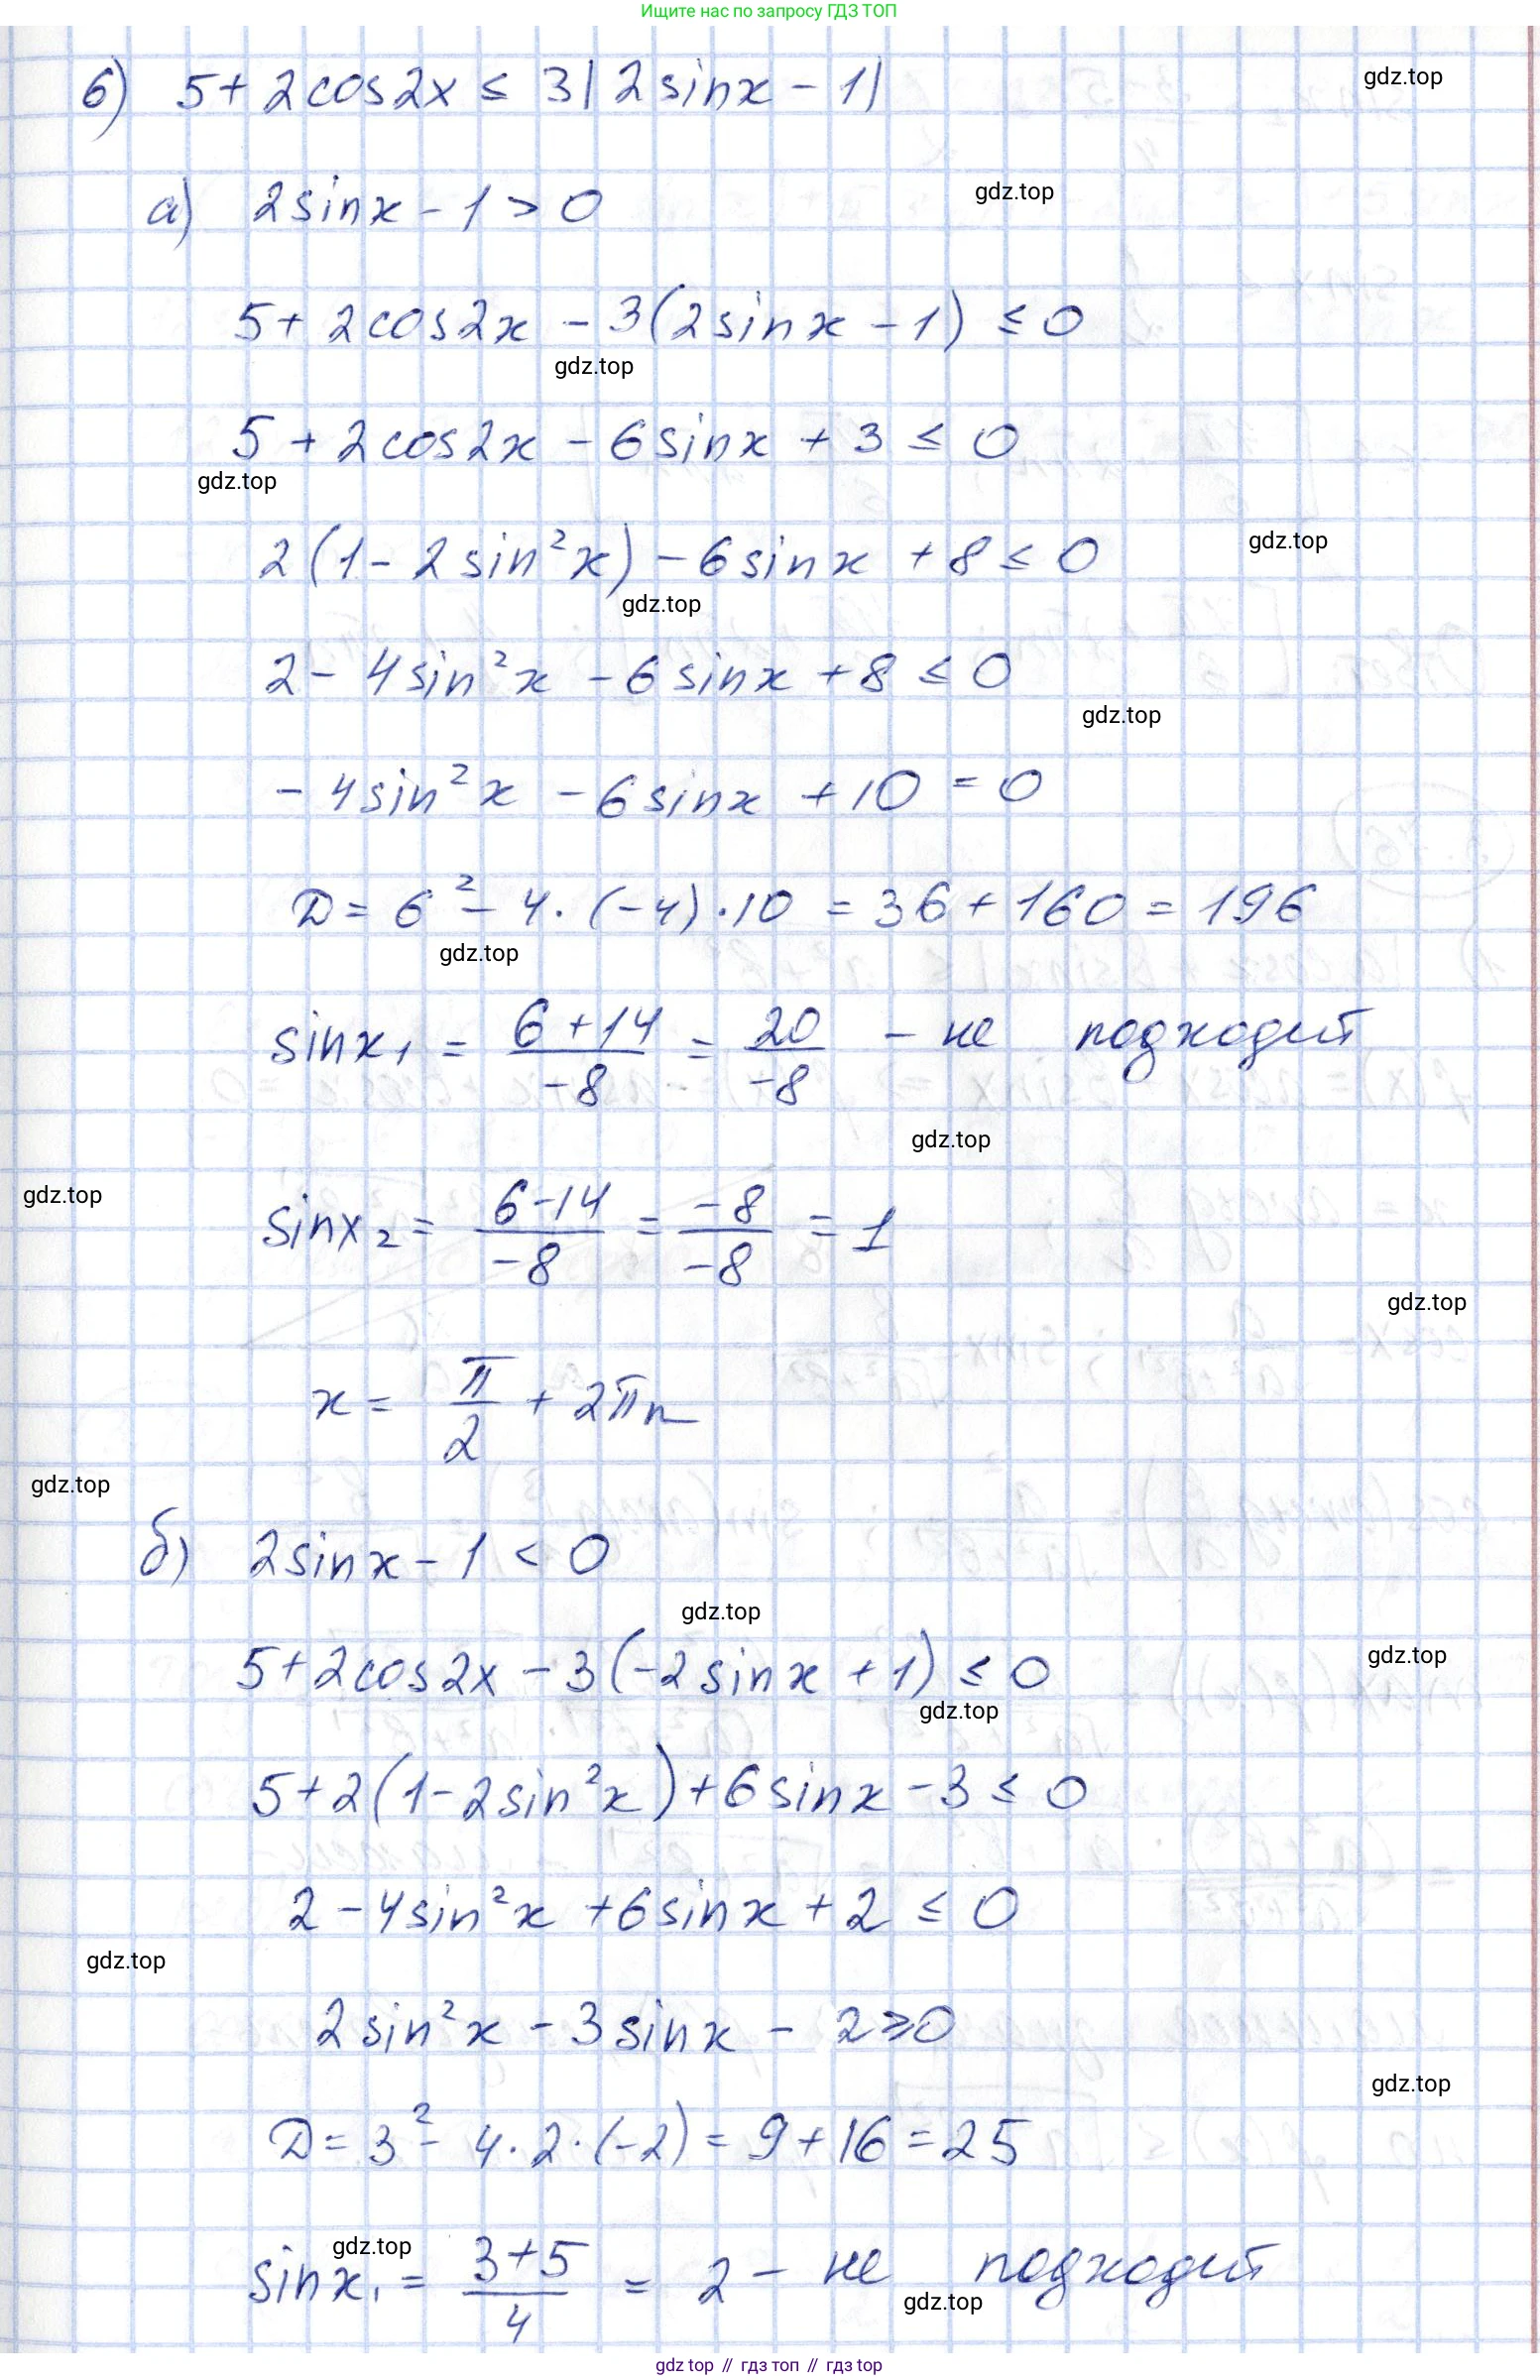 Ищите нас по запросу ГДЗ ТОП
6) 5 + 2cos2x ≤ 3|2sinx - 1|
gdz.top
а) 2sinx - 1 > 0
gdz.top
5 + 2cos2x - 3(2sinx - 1) ≤ 0
gdz.top
5 + 2cos2x - 6sinx + 3 ≤ 0
gdz.top
2(1 - 2sin²x) - 6sinx + 8 ≤ 0
gdz.top
gdz.top
2 - 4sin²x - 6sinx + 8 ≤ 0
gdz.top
- 4sin²x - 6sinx + 10 = 0
D = 6² - 4·(-4)·10 = 36 + 160 = 196
gdz.top
sinx₁ = (6+14)/(-8) = 20/(-8) - не подходит
gdz.top
gdz.top
sinx₂ = (6-14)/(-8) = (-8)/(-8) = 1
gdz.top
x = π/2 + 2πn
gdz.top
б) 2sinx - 1 < 0
gdz.top
5 + 2cos2x - 3(-2sinx + 1) ≤ 0
gdz.top
gdz.top
5 + 2(1 - 2sin²x) + 6sinx - 3 ≤ 0
2 - 4sin²x + 6sinx + 2 ≤ 0
gdz.top
2sin²x - 3sinx - 2 ≥ 0
gdz.top
D = 3² - 4·2·(-2) = 9 + 16 = 25
gdz.top
sinx₁ = (3+5)/4 = 2 - не подходит
gdz.top
gdz top // гдз топ // гдз top